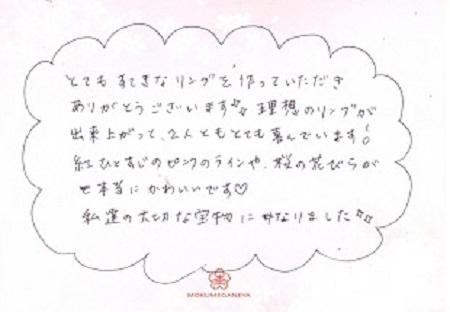 とても すてきな リングを 作っていただき
ありがとうございます♪♪ 理想のリングが
出来上がって、2人ともとても喜んでいます!
紅ひとすじのピンクのラインや、桜の花びらが
本当にかわいいです♡
私達の大切な宝物になりました♪♪
MOKUMEGANEYA